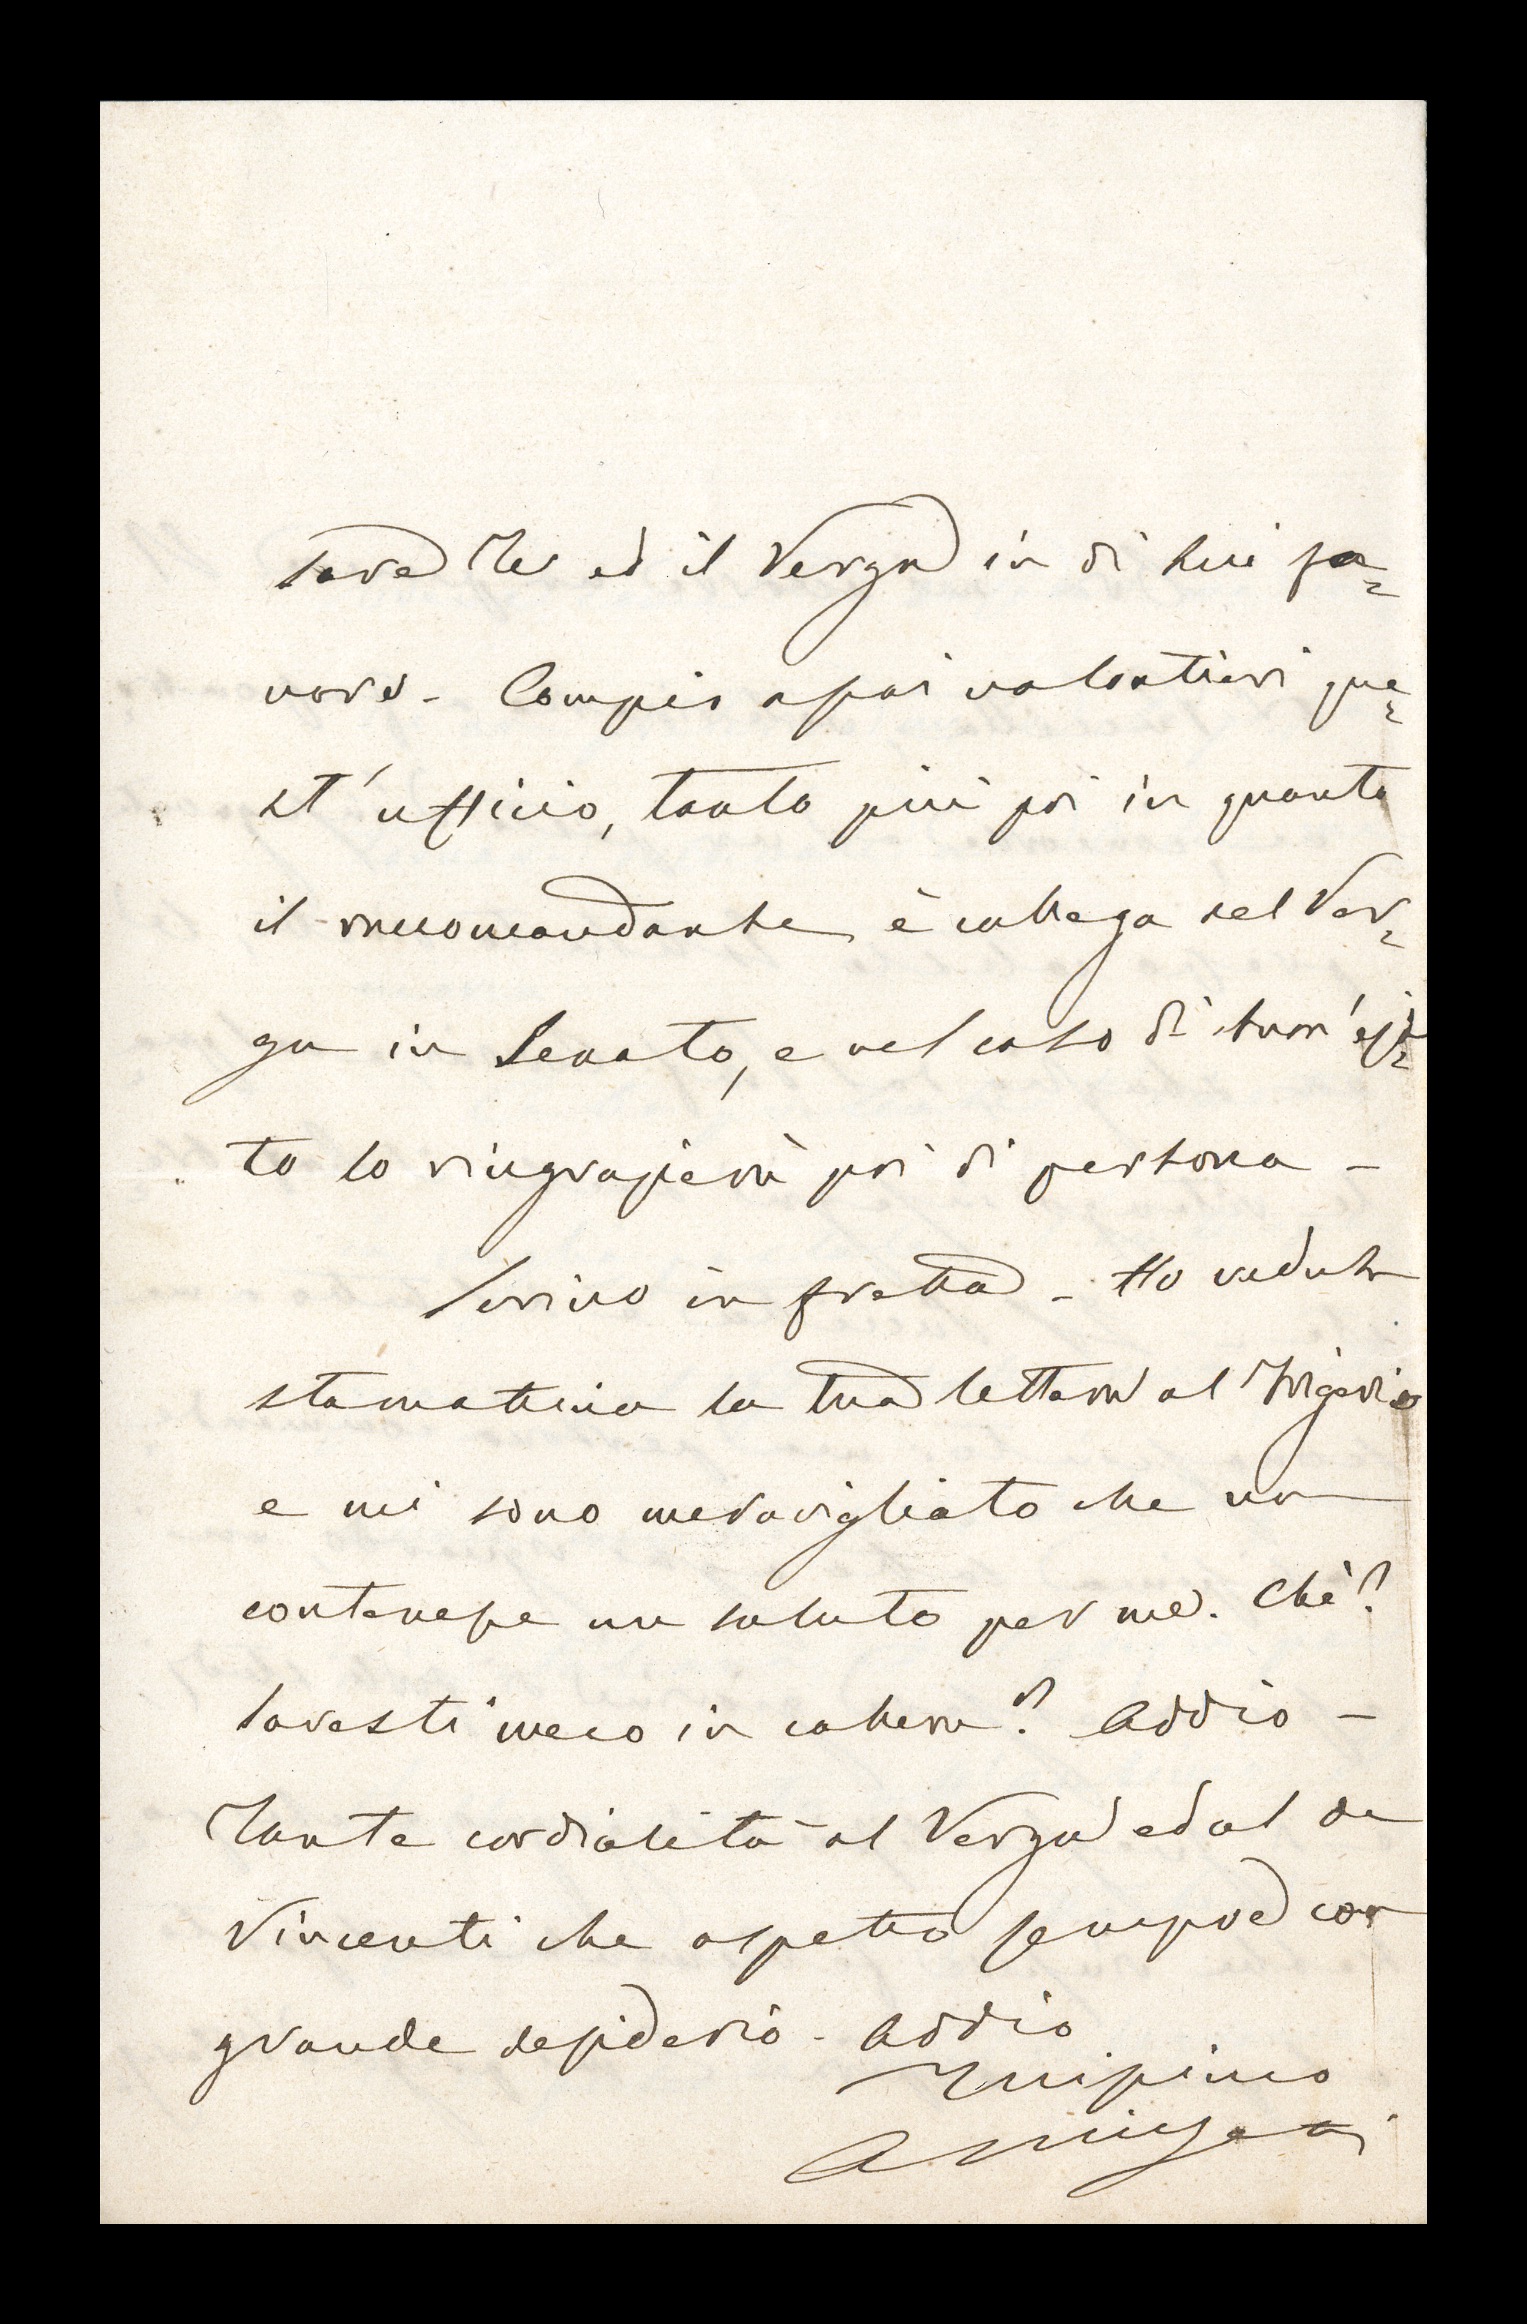 sare Te ed il Verga in di lui fa=
vore - Compio assai volontieri que=
st'ufficio, tanto più poi in quanto
il raccomandante è collega del Ver=
ga in Senato, e nel caso di buon'esi=
to lo ringrazierà poi di persona -
Scrivo in fretta - Ho veduto
stamattina la tua lettera al Frigerio
e mi sono meravigliato che non
contenesse un saluto per me. Chè?
saresti meco in collera? Addio -
Tante cordialità al Verga ed al de
Vincenti che aspetto sempre con
grande desiderio - Addio
Tuissimo